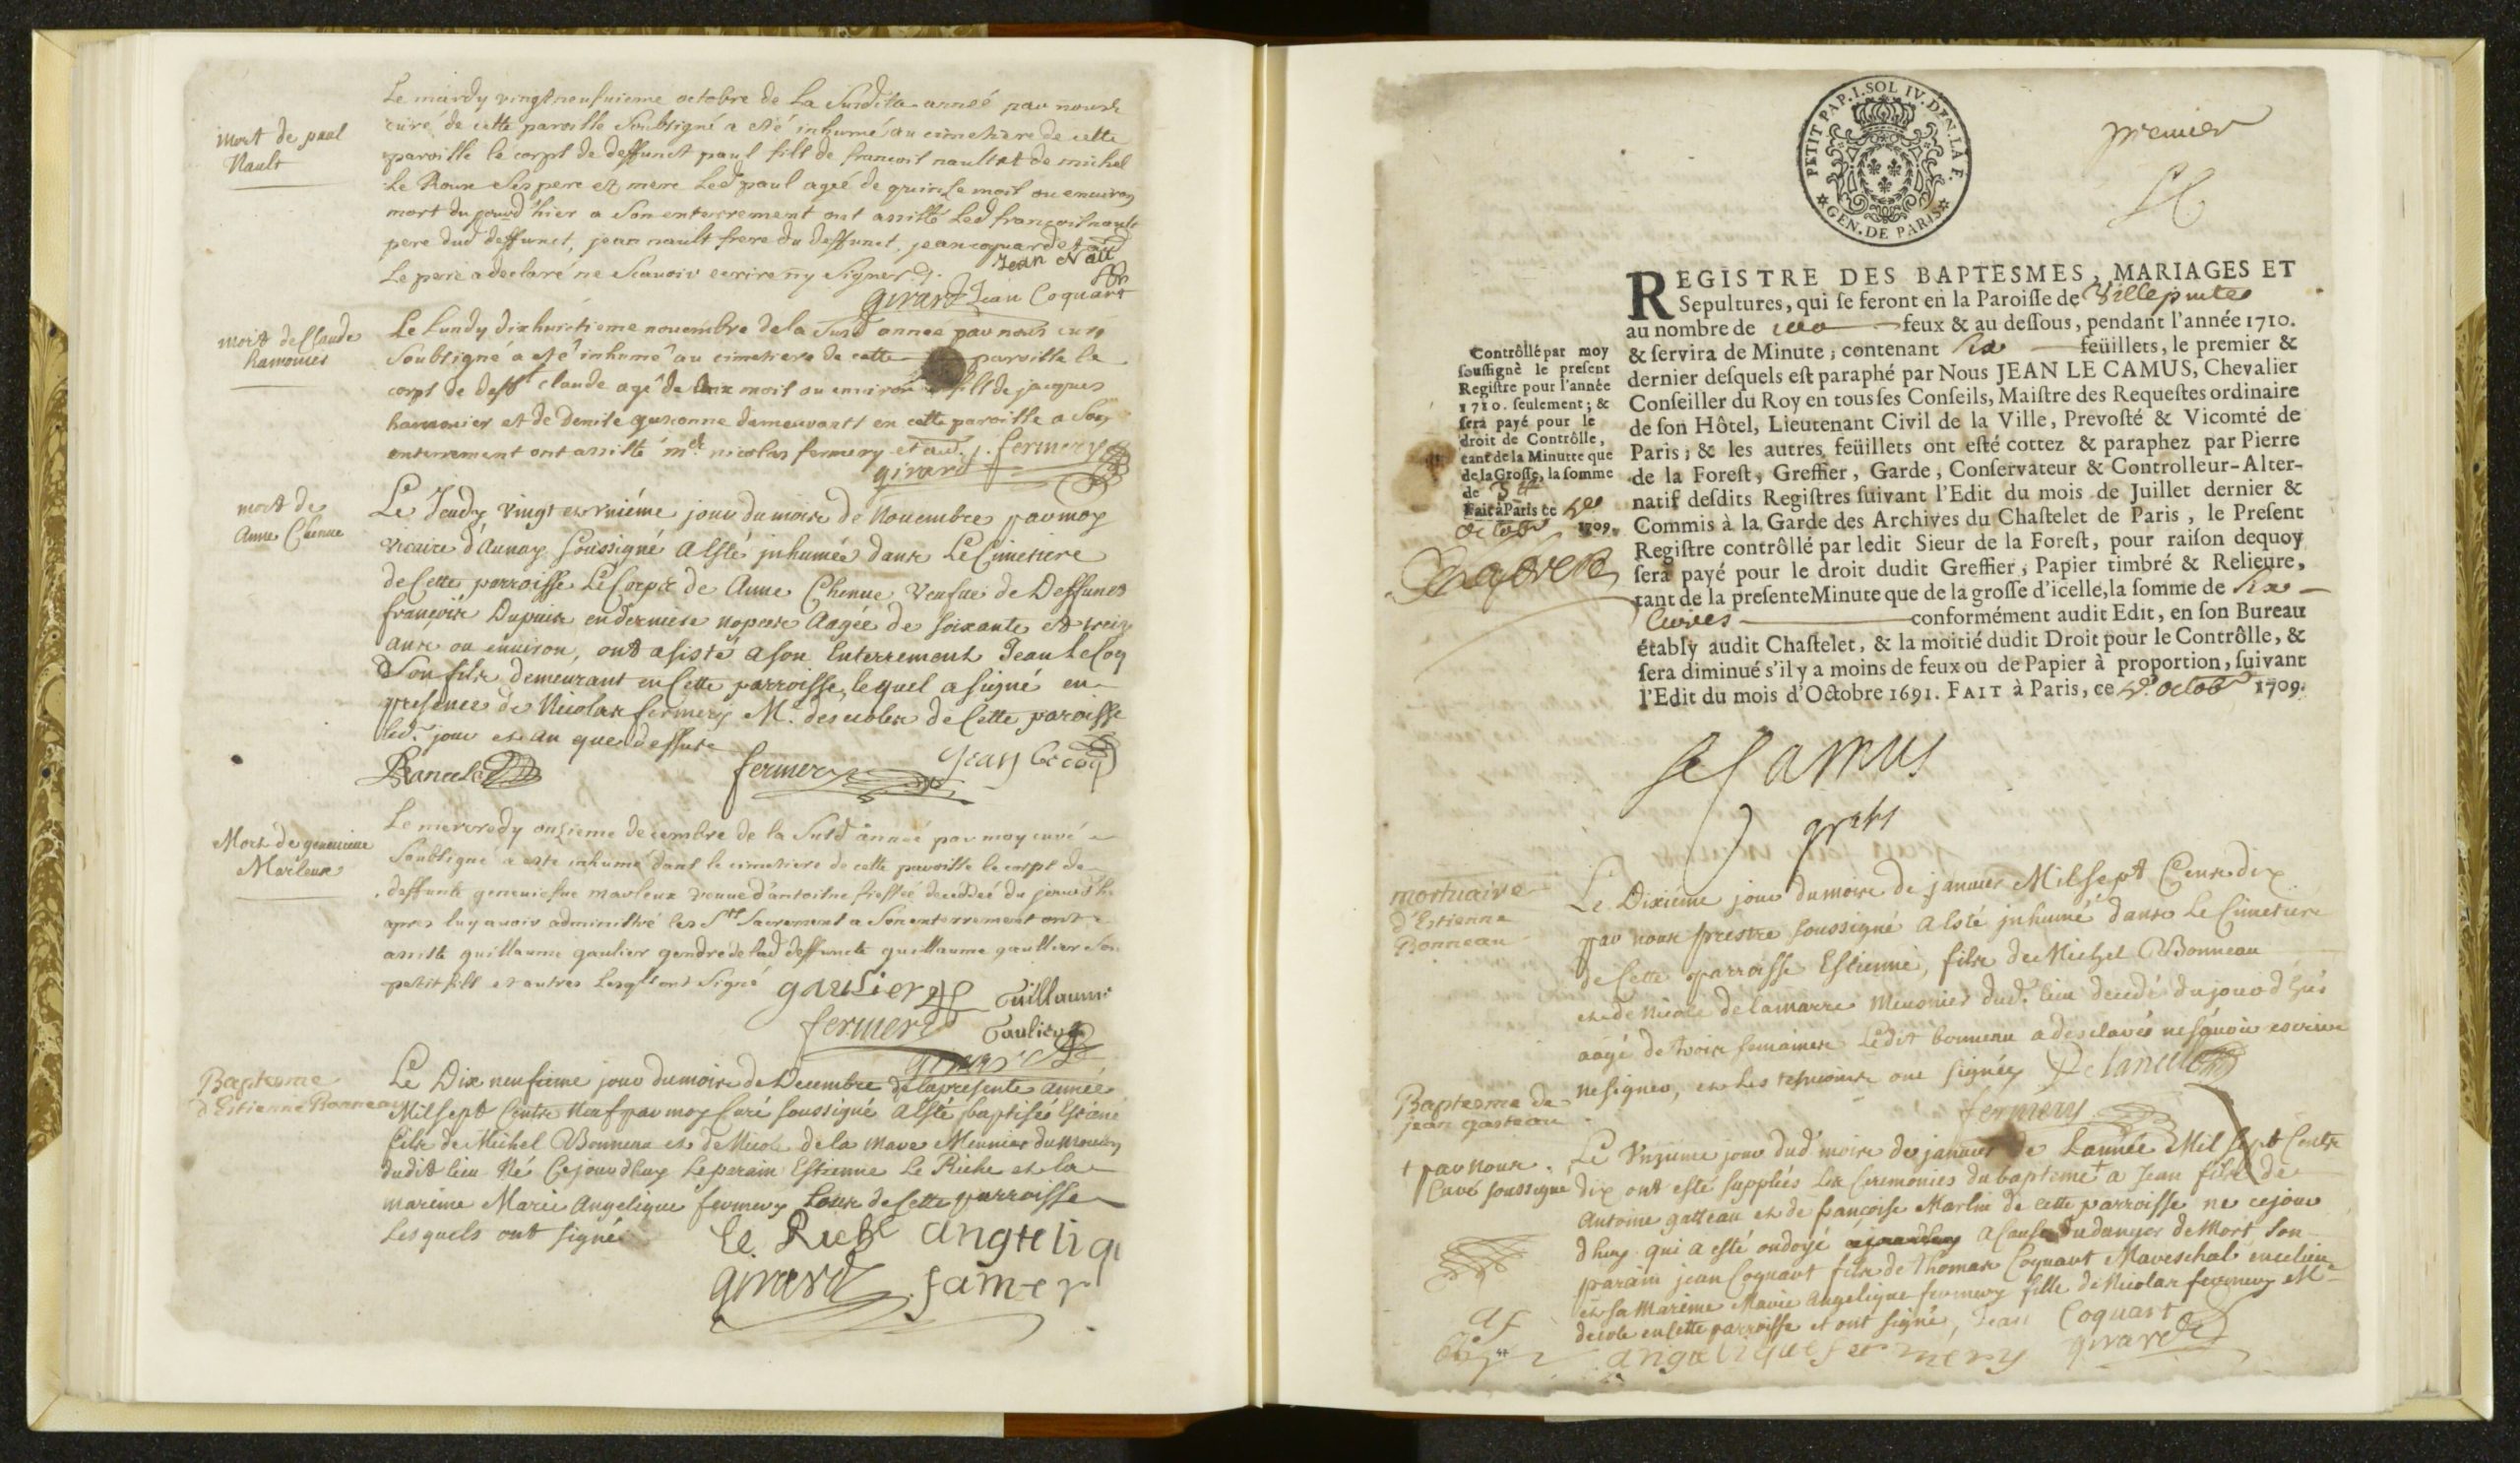 mort de paul
Nault
Le mardy vingt neufuieme octobre de la Susdite année par nous
curé de cette paroisse Soubsigné a esté inhumé au cimetiere de cette
paroisse le corps de deffunct paul fils de francois nault et de michel
Le Roux Ses pere et mere Led paul agé de quinse mois ou environ
mort du jourd'hier a Son enterrement ont assisté Led francois nault
pere dud deffunct, jean nault frere du deffunct, jean coquard et
Le pere a declaré ne Scauoir ecrire ny Signer
Jean Nau
girard Jean Coquart
mort de Claude
hamonier
Le Lundy dixhuictieme nouembre de la Susd année par nous curé
Soubsigné a esté inhumé au cimetiere de cette paroisse le
corps de deff claude agé de mois ou environ fils de jacques
hamonier et de denise demeurants en cette paroisse a Son
enterrement ont assisté me nicolas fermery
fermery
girard
mort de
Anne Chenue
Le Jeudy vingt et vniéme jour du mois de Nouembre par moy
vicaire d'Aunay soussigné a Esté inhumée dans Le Cimetiere
de Cette parroisse Le Corps de Anne Chenue veufue de Deffunct
françois Dupuis en dernieres nopces Aagée de soixante et
ans ou enuiron, ont asisté a son Enterrement Jean Lecoq
Son fils demeurant en Cette parroisse, lequel a signé en
presence de Nicolas fermery Me des ecoles de Cette paroisse
led. jour et an que dessus
fermery
Jean Lecoq
Mort de geneuieue
Marleux
Le mercredy onzieme decembre de la Susd année par moy curé
Soubsigné a esté inhumé dans le cimetiere de cette paroisse le corps de
deffunte geneuiefue marleux veuue d'antoine decedée du jourd'h
apres luy auoir administré les Sts Sacrements a Son enterrement ont
assisté guillaume gaulier gendre de lad deffuncte guillaume gaultier Son
petit fils et autres Lesqls ont Signé
gaulier
Guillaume
fermery
Gaulier
girard
Baptesme
d'Estienne Bonneau
Le Dix neufieme jour du mois de Decembre de la presente année
Mil sept Cents Neuf par moy Curé soussigné a Esté baptisé Estienne
fils de Michel Bonneau et de Nicole de la Mare Meunier du moulin
dudit lieu Né Cejourdhuy Le parain Estienne Le Riche et la
mareine Marie Angelique fermery tous de Cette parroisse
Lesquels ont signé
le Riche angeliq
girard famer
PETIT PAP. I. SOL IV. DEN. LA F.
GEN. DE PARIS
premier
REGISTRE DES BAPTESMES, MARIAGES ET
Sepultures, qui se feront en la Paroisse de Villepinte
au nombre de feux & au dessous, pendant l'année 1710.
& servira de Minute, contenant feüillets, le premier &
dernier desquels est paraphé par Nous JEAN LE CAMUS, Chevalier
Conseiller du Roy en tous ses Conseils, Maistre des Requestes ordinaire
de son Hôtel, Lieutenant Civil de la Ville, Prevosté & Vicomté de
Paris; & les autres feüillets ont esté cottez & paraphez par Pierre
de la Forest, Greffier, Garde, Conservateur & Controlleur-Alter-
natif desdits Registres suivant l'Edit du mois de Juillet dernier &
Commis à la Garde des Archives du Chastelet de Paris, le Present
Registre contrôllé par ledit Sieur de la Forest, pour raison dequoy
sera payé pour le droit dudit Greffier, Papier timbré & Relieure,
tant de la presente Minute que de la grosse d'icelle, la somme de
Livres conformément audit Edit, en son Bureau
étably audit Chastelet, & la moitié dudit Droit pour le Contrôlle, &
sera diminué s'il y a moins de feux ou de Papier à proportion, suivant
l'Edit du mois d'Octobre 1691. FAIT à Paris, ce octob 1709.
Contrôllé par moy
soussigné le present
Registre pour l'année
1710. seulement; &
sera payé pour le
droit de Contrôlle,
tant de la Minutte que
de la Grosse, la somme
de 3
Fait à Paris ce
octob 1709.
Delaforest
le Camus
gratis
mortuaire
d'Estienne
Bonneau
Le Dixiéme jour du mois de januier Mil sept Cents dix
par nous prestre soussigné a Esté inhumé dans Le Cimetiere
de Cette parroisse Estienne, fils de Michel Bonneau
et de Nicole de lamarre Meusnier dud. lieu decedé du jourd'hui
aagé de trois semaines Ledit bonneau a desclaré ne sçauoir escrire
ne signer, et les tesmoins ont signés
fermery
Baptesme de
jean gasteau
Le Vnzieme jour dud. mois de januier de Lannée Mil sept Cents
dix ont esté suppliés Les Ceremonies du baptême + a Jean fils de
+ par nous
Curé soussigné
Antoine gatteau et de françoise Marlin de cette parroisse né cejour
dhuy qui a esté ondoyé a Cause du danger de Mort son
parain jean Coquart fils de Thomas Coquart Mareschal en ce lieu
et sa Mareine Marie Angelique fermery fille de Nicolas fermery Me
decole en Cette parroisse et ont signé, Jean Coquart
angelique fermery girard